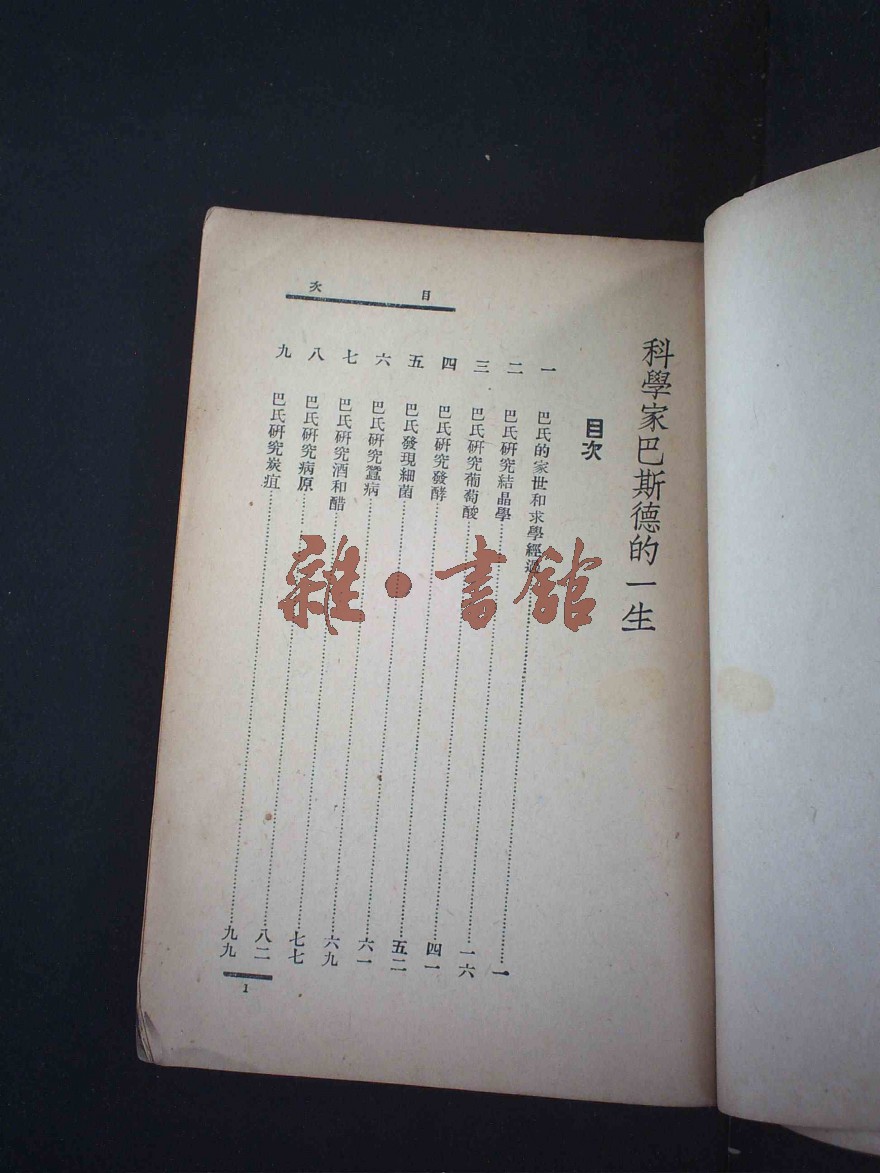 科學家巴斯德的一生
目次
一 巴氏的家世和求學經過……一
二 巴氏研究結晶學……一六
三 巴氏研究葡萄酸……四一
四 巴氏研究發酵……五二
五 巴氏發現細菌……六一
六 巴氏研究蠶病……六九
七 巴氏研究酒和醋……七七
八 巴氏研究病原……八二
九 巴氏研究炭疽……九九
目次
1
雜·書館